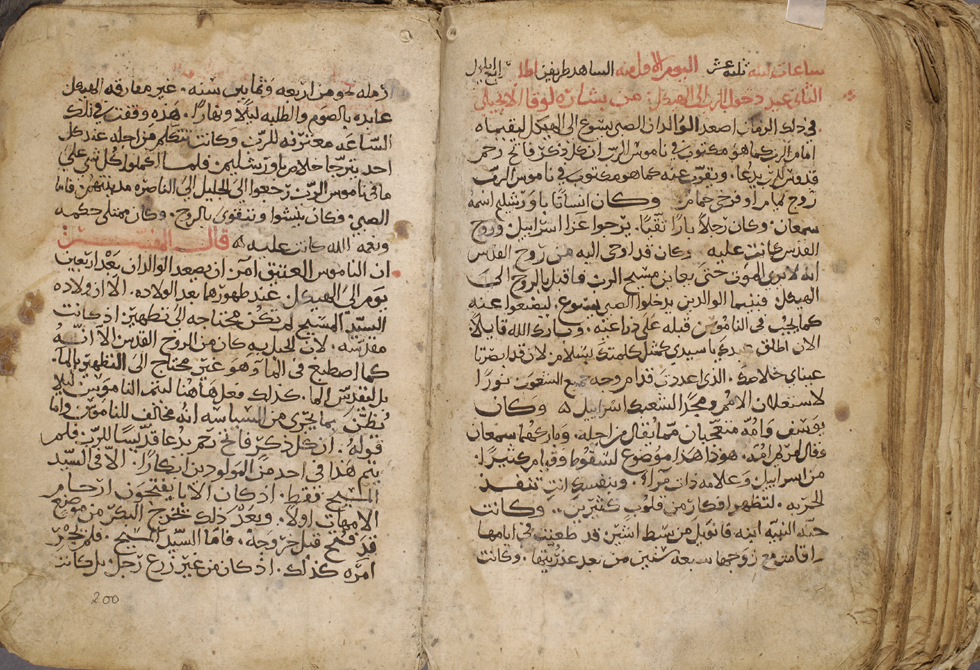 ساعات ليلته ثلثه عشر اليوم الاول منه الساهد طريفن اطا
الثاني عيد دخول الرب الى الهيكل. من بشارة لوقا الانجيلي
في ذلك الزمان اصعد الوالدان الصبي يسوع الى الهيكل ليقيماه
امام الرب كما هو مكتوب في ناموس الرب ان كل ذكر فاتح رحم
قدوس للرب يدعا. ويقرب عنه كما هو مكتوب في ناموس الرب
زوج يمام او فرخي حمام وكان انسانا باورشليم اسمه
سمعان. وكان رجلا بارا تقيا. يرجوا عزا اسراييل وروح
القدس كانت عليه. وكان قد اوحي اليه من روح القدس
انه لا يرى الموت حتى يعاين مسيح الرب فاقبل بالروح الى
الهيكل فبينما الوالدين يدخلوا الصبي يسوع. ليصنعوا عنه
كما يجب في الناموس قبله على ذراعيه. وبارك الله قايلا
الان اطلق عبدك يا سيدي كمثل كلمتك بسلام من لان قد ابصرتا
عيناي خلاصك. الذي اعددت قدام وجه جميع الشعوب نورا
لاستعلان الامم ومجدا لشعبك اسراييل وكان
يوسف وامه متعجبان مما يقال من اجله. وباركهما سمعان
وقال لمريم امه. هوذا هذا موضوع لسقوط وقيام كثيرا.
من اسراييل وعلامه ذات مرآء. وبنفسك انتي تنفذ
الحربه. لتظهر افكار من قلوب كثيرين.. وكانت
حنه النبيه ابنه فانويل من سبط اشير قد طعنت في ايامها
اقامت مع زوجها سبعه سنين من بعد عذريتها. وكانت
ارمله نحو من اربعه وثمانين سنه. غير مفارقه الهيكل
عابده بالصوم والطلبه ليلا ونهارا. هذه وقفت في تلك
الساعه معترفه للرب وكانت تتكلم من اجله عند كل
احد يترجا خلاص ياورشليم فلما اكملوا كل شي على
ما في ناموس الرب رجعوا الى الجليل الى الناصره مدينتهم فاما
الصبي. فكان ينشوا ويتقوى بالروح. وكان ممتلي حكمه
ونعمه الله كانت عليه قال المفسر
ان الناموس العتيق امر ان يصعد الوالدان بعد اربعين
يوم الى الهيكل عند طهورهما بعد الولاده. الا ان ولاده
السيد المسيح لم تكن محتاجه الى تطهير اذ كانت
مقدسه. لان الحبل به كان من الروح القدس الا انه
كما اصطبغ في الما وهو غير محتاج الى التطهير بالما.
بل ليقدس الما. كذلك فعل هاهنا ليتم الناموس ليلا
يظن بما يجري من السياسه انه مخالف للناموس واما
قوله. ان كل ذكر فاتح رحم يدعا قديسا للرب فلم
يتم هذا في احد من المولودين ابكارا. الا في السيد
المسيح فقط. اذ كان الابا يفتحون ارحام
الامهات اولا. وبعد ذلك يخرج البكر من موضع
قد فتح قبل خروجه. فاما السيد المسيح. فلم يجر
امره كذلك. اذ كان من غير زرع رجل. بل كانت
200